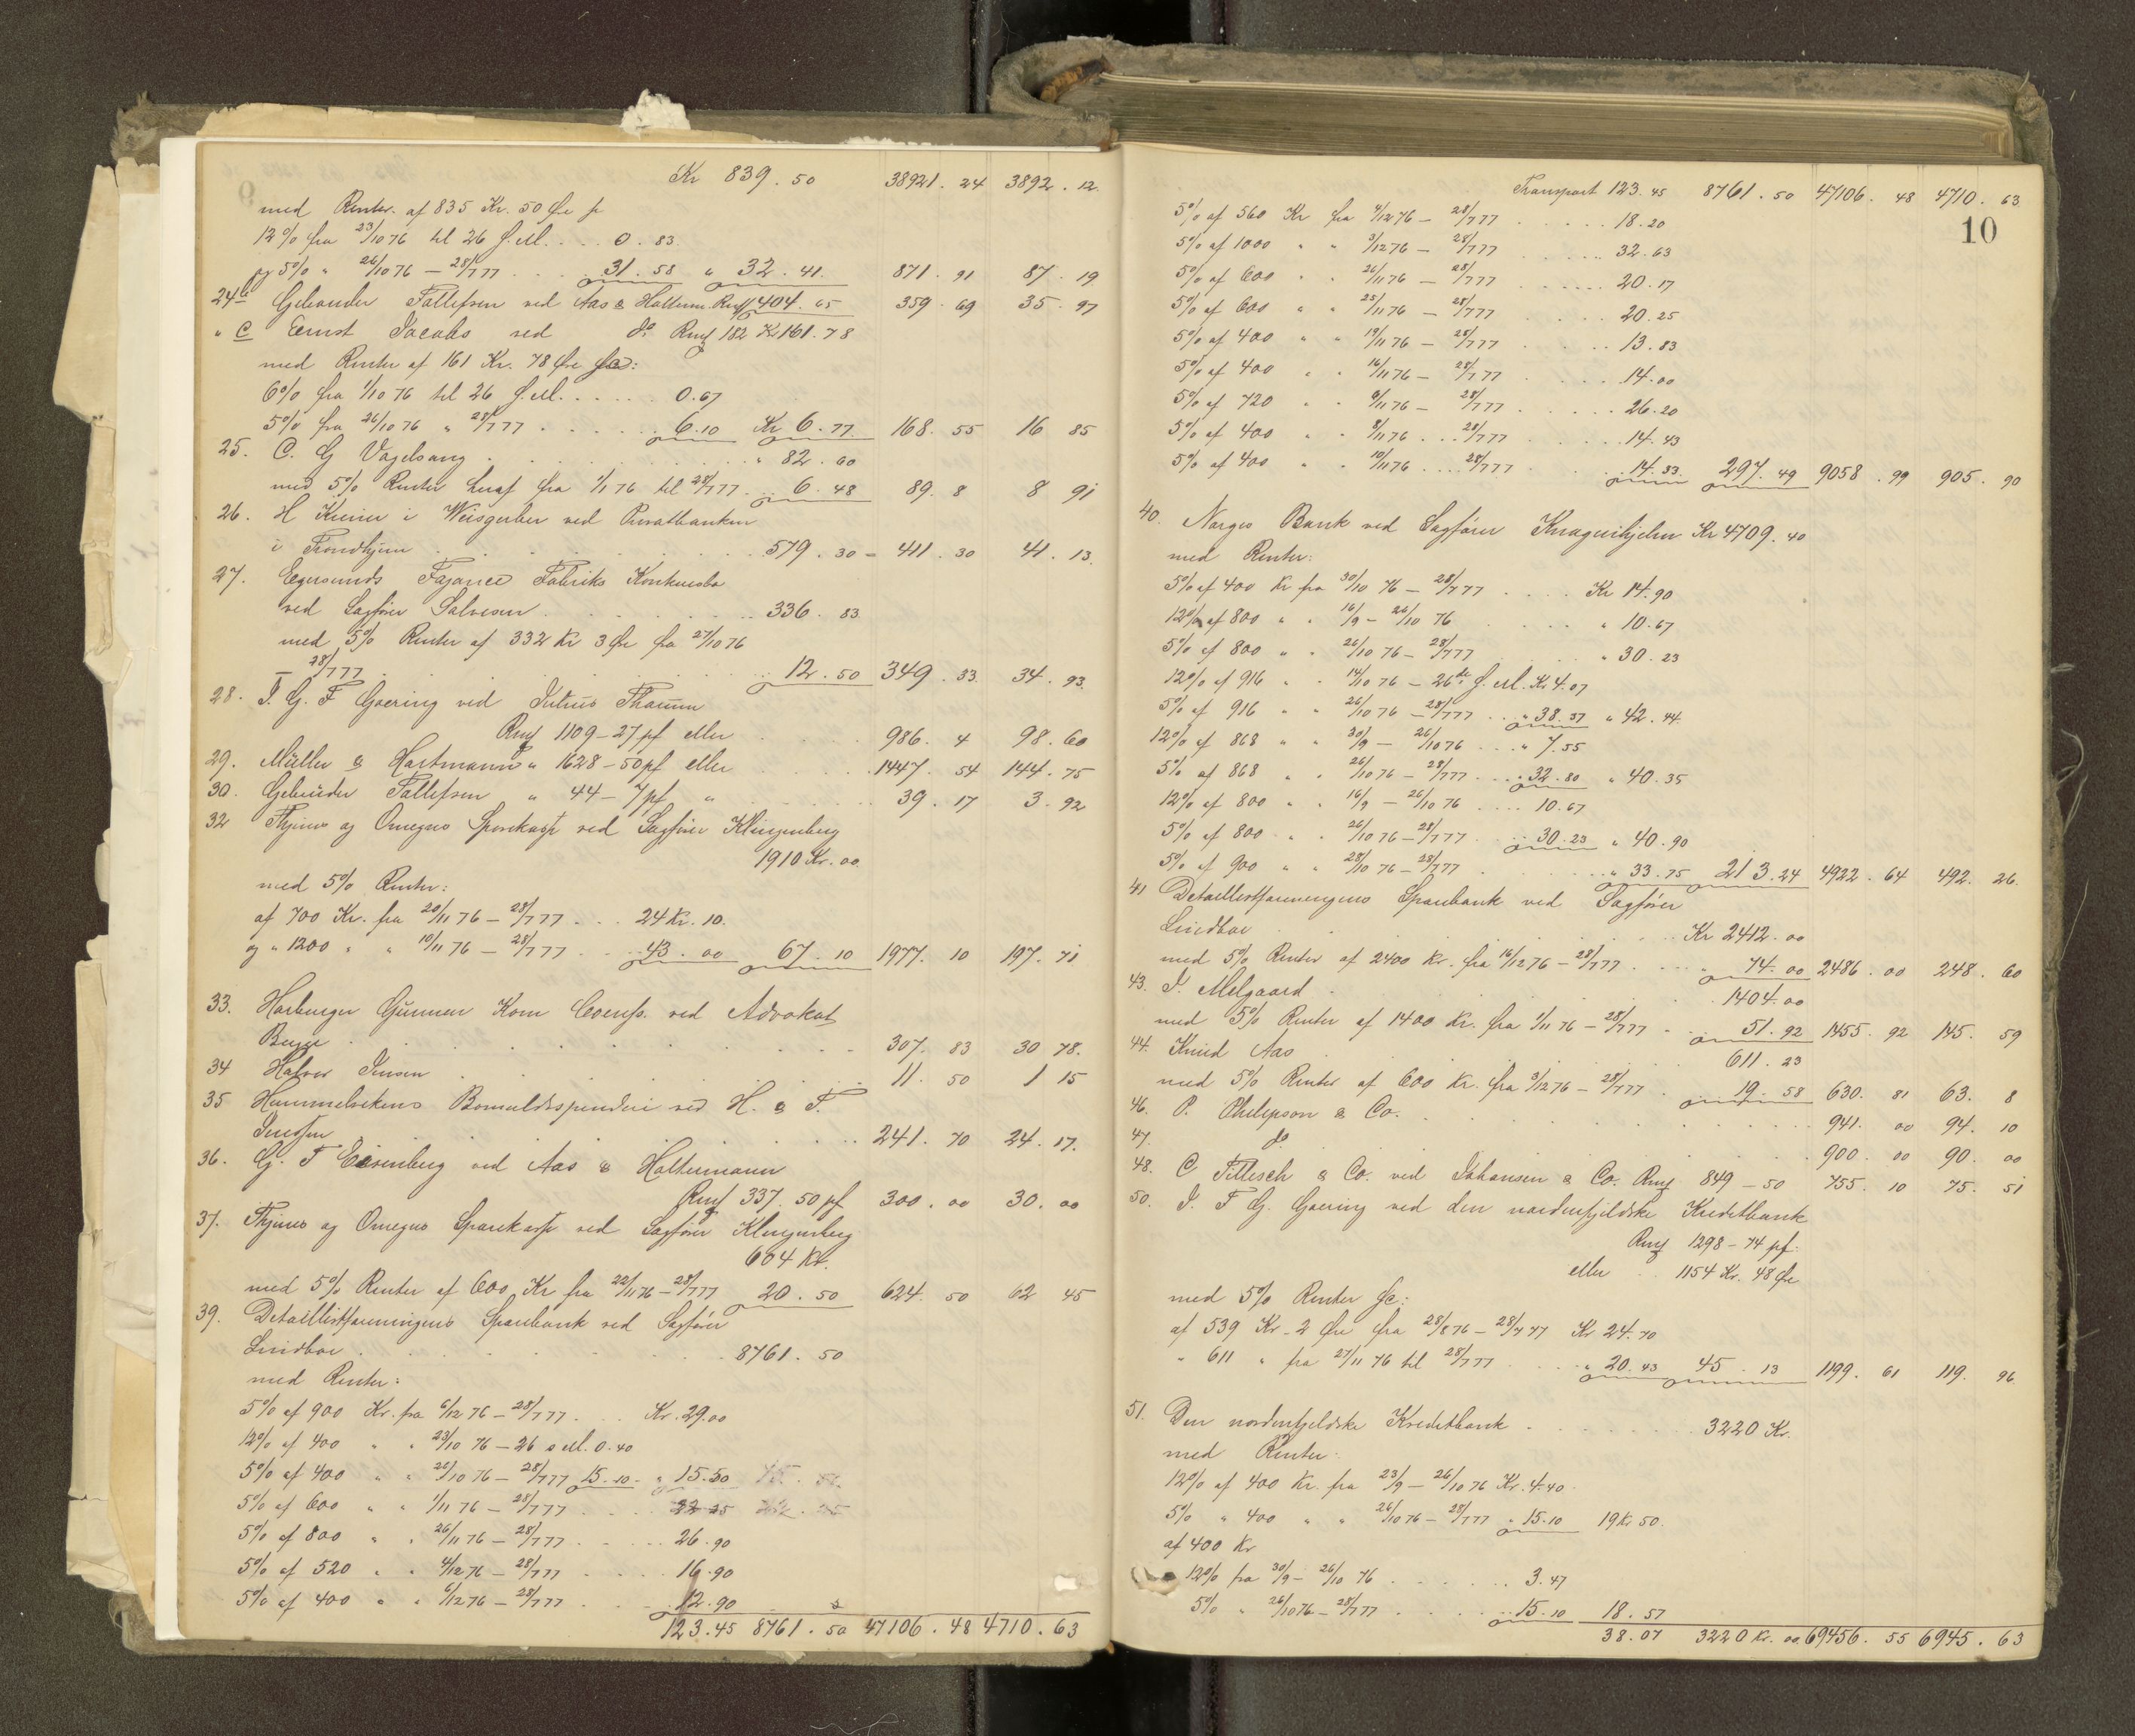 Kr 839.50 38921.24 3892.12.
med Renter af 835 Kr. 50 Øre fr
12% fra 23/10 76 til 26 s. M. . . . 0.83.
og 5% " 26/10 76 – 28/7 77 . . . 31.58 " 32.41. 871.91 87.19
24b Gebrüder Tollefsen ved Aas & Haltermann Rmf 404.65 359.69 35.97
" c Ernst Jacobs ved do Rmf 182 Kr 161.78
med Renter af 161 Kr. 78 Øre
6% fra 1/10 76 til 26 s. M. . . . . 0.67
5% fra 26/10 76 " 28/7 77 . . . . . 6.10 Kr 6.77. 168.55 16 85
25. C. G Vogelsang . . . . . . " 82.60
med 5% Renter heraf fra 1/1 76 til 28/7 77 . . 6.48 89.8 8 91
26. H Kurier i Weisgerber ved Privatbanken
i Trondhjem . . . . . 579.30 – 411.30 41.13.
27. Egersunds Fajance Fabriks Konkursbo
ved Sagfører Salvesen . . . . . 336.83.
med 5% Renter af 332 Kr 3 Øre fra 27/10 76
– 28/7 77 . . . . . 12.50 349.33. 34.93.
28. I. G. F Goering ved Julius Thamm
Rmf 1109 – 27 pf eller . . . 986.4 98.60
29. Müller & Hartmann " 1628 – 50 pf eller . . . 1447.54 144.75
30. Gebrüder Tollefsen " 44 – 7 pf " . . . 39.17 3.92
32 Thjems og Omegns Sparekasse ved Sagfører Klingenberg
1910 Kr. 00
med 5% Renter:
af 700 Kr. fra 20/11 76 – 28/7 77 . . . 24 Kr. 10.
og " 1200 " " 10/11 76 – 28/7 77 . . . 43.00 67.10 1977.10 197.71
33. Harburger Gummi Kam Comp. ved Advokat
Beyer . . . . . 307.83 30 78.
34 Halvor Jensen . . . . . 11.50 1 15
35 Hammelvikens Bomuldsspinderi ved H. & F.
Jenssen . . . . . 241.70 24.17.
36. G. F Eisenberg ved Aas & Haltermann
Rmf 337.50 pf 300.00 30.00
37. Thjems og Omegns Sparekasse ved Sagfører Klingenberg
604 Kr.
med 5% Renter af 600 Kr fra 22/11 76 – 28/7 77 20.50 624.50 62 45
39. Detaillistforeningens Sparebank ved Sagfører
Lindboe . . . . . 8761.50
med Renter:
5% af 900 Kr. fra 6/12 76 – 28/7 77 . . Kr. 29.00
12% af 400 " " 23/10 76 – 26 s M. 0.40
5% af 400 " " 26/10 76 – 28/7 77 15.10 " 15.50
5% af 600 " " 1/11 76 – 28/7 77 . . . 22 25
5% af 800 " " 26/11 76 – 28/7 77 . . . 26.90
5% af 520 " " 4/12 76 – 28/7 77 . . . 16.90
5% af 400 " " 6/12 76 – 28/7 77 . . . 12.90
123.45 8761.50 47106.48 4710.63
Transport 123.45 8761.50 47106.48 4710.63
10
5% af 560 Kr fra 4/12 76 – 28/7 77 . . . . 18.20
5% af 1000 " " 3/12 76 – 28/7 77 . . . . 32.63
5% af 600 " " 26/11 76 – 28/7 77 . . . . 20.17
5% af 600 " " 25/11 76 – 28/7 77 . . . . 20.25
5% af 400 " " 19/11 76 – 28/7 77 . . . . 13.83
5% af 400 " " 16/11 76 – 28/7 77 . . . . 14.00
5% af 720 " " 6/11 76 – 28/7 77 . . . . 26.20
5% af 400 " " 8/11 76 . . . 28/7 77 . . . . 14.43
5% af 400 " " 10/11 76 . . . 28/7 77 . . . . 14.33. 297.49 9058.99 905.90
40. Norges Bank ved Sagfører Knagenhjelm Kr 4709.40
med Renter:
5% af 400 Kr fra 30/10 76 – 28/7 77 . . . . Kr 14.90
12% af 800 " " 16/9 – 26/10 76 . . . " 10.67
5% af 800 " " 26/10 76 – 28/7 77 . . . " 30.23
12% af 916 " " 14/10 76 – 26de s. M. Kr 4.07
5% af 916 " " 26/10 76 – 28/7 77 . . " 38.37 " 42.44.
12% af 868 " " 30/9 – 26/10 76 . . . " 7.55
5% af 868 " " 26/10 76 – 28/7 77 . . . 32.80 " 40.35
12% af 800 " " 16/9 – 26/10 76 . . . . 10.67
5% af 800 " " 26/10 76 – 28/7 77 . . . 30.23 " 40.90
5% af 900 " " 28/10 76 – 28/7 77 . . . " 33.75 213.24 4922.64 492.26.
41 Detaillistforeningens Sparebank ved Sagfører
Lindboe . . . . . Kr 2412.00
med 5% Renter af 2400 Kr. fra 16/12 76 – 28/7 77 . . . " 74.00 2486.00 248.60
43. I. Melgaard . . . . . 1404.00
med 5% Renter af 1400 Kr. fra 1/11 76 – 28/7 77 . . . 51.92 1455.92 145.59
44. Knud Aas . . . . . 611.23
med 5% Renter af 600 Kr. fra 3/12 76 – 28/7 77 . . . 19.58 630.81 63.8
46. P. Philipson & Co. . . . . . 941.00 94.10
47. do . . . . . 900.00 90.00
48. C Tillisch & Co. ved Johansen & Co. Rmf 849 – 50 755.10 75.51
50. I. F G. Goering ved den nordenfjeldske Kreditbank
Rmf 1298 – 74 pf.
eller . . 1154 Kr. 48 Øre
med 5% Renter
af 539 Kr – 2 Øre fra 28/8 76 – 28/7 77 Kr 24.70
" 611 " fra 27/11 76 til 28/7 77 . . . " 20.43 45.13 1199.61 119.96
51. Den nordenfjeldske Kreditbank . . . . . 3220 Kr.
med Renter:
12% af 400 Kr. fra 23/9 – 26/10 76 Kr. 4.40.
5% " 400 " " 26/10 76 – 28/7 77 " 15.10 19 Kr 50.
af 400 Kr
12% fra 30/9 – 26/10 76 . . . . . 3.47
5% " 26/10 76 – 28/7 77 . . . . . 15.10 18.57
38.07 3220 Kr. 00 69456.55 6945.63